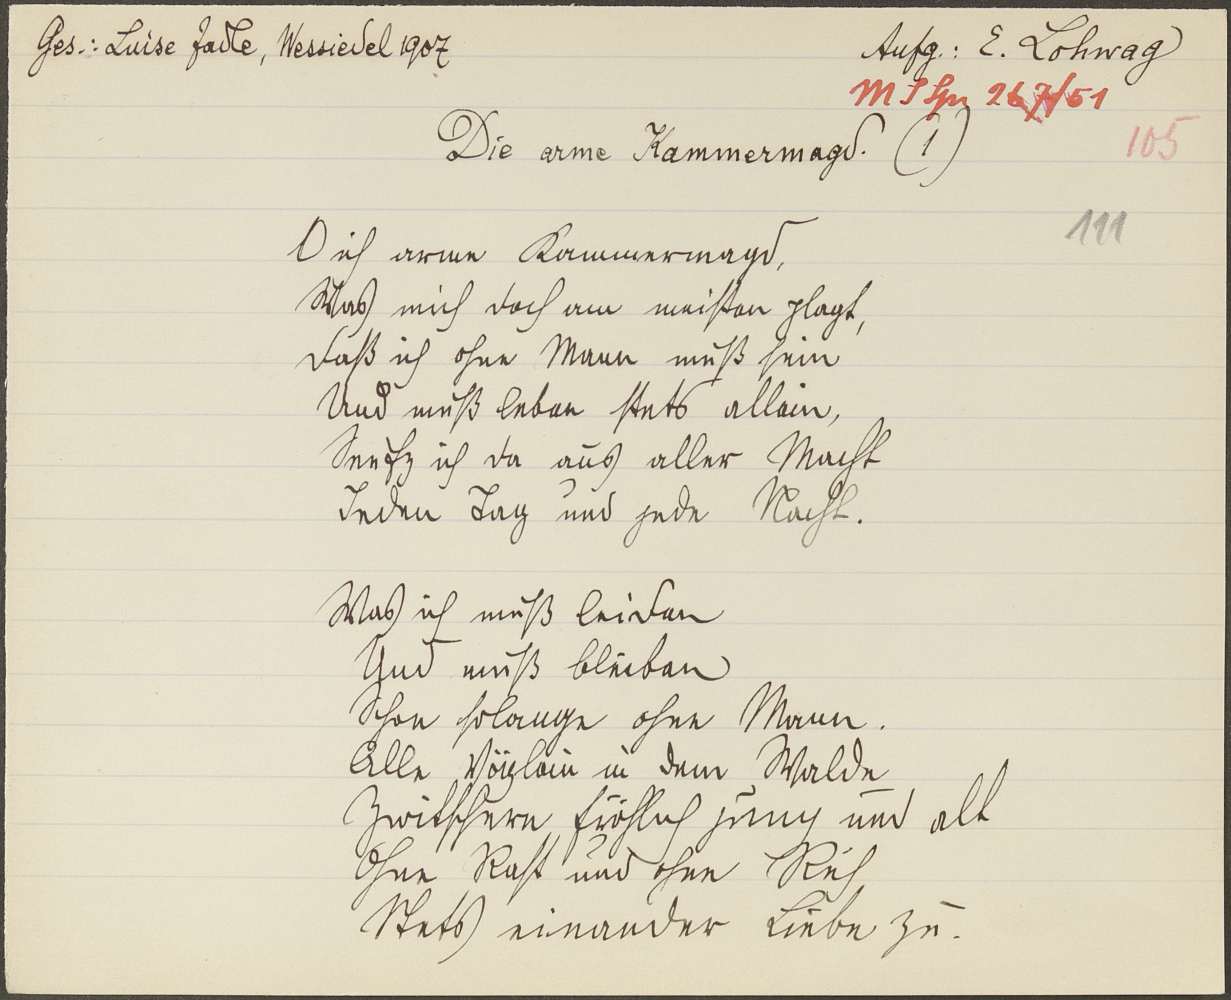 Ges.: Luise Jadle, Wessiedel 1907
Aufg.: E. Lohwag
105
Die arme Kammermagd. (1)
111
O ich arme Kammermagd,
Was mich doch am meisten plagt,
Daß ich ohne Mann muß sein
Und muß leben stets allein,
Seufz ich da aus aller Macht
Jeden Tag und jede Nacht.
Was ich muß leiden
Und muß bleiben
Schon solange ohne Mann.
Alle Vöglein in dem Walde
Zwitschern fröhlich jung und alt
Ohne Rast und ohne Ruh
Stets einander Liebe zu.